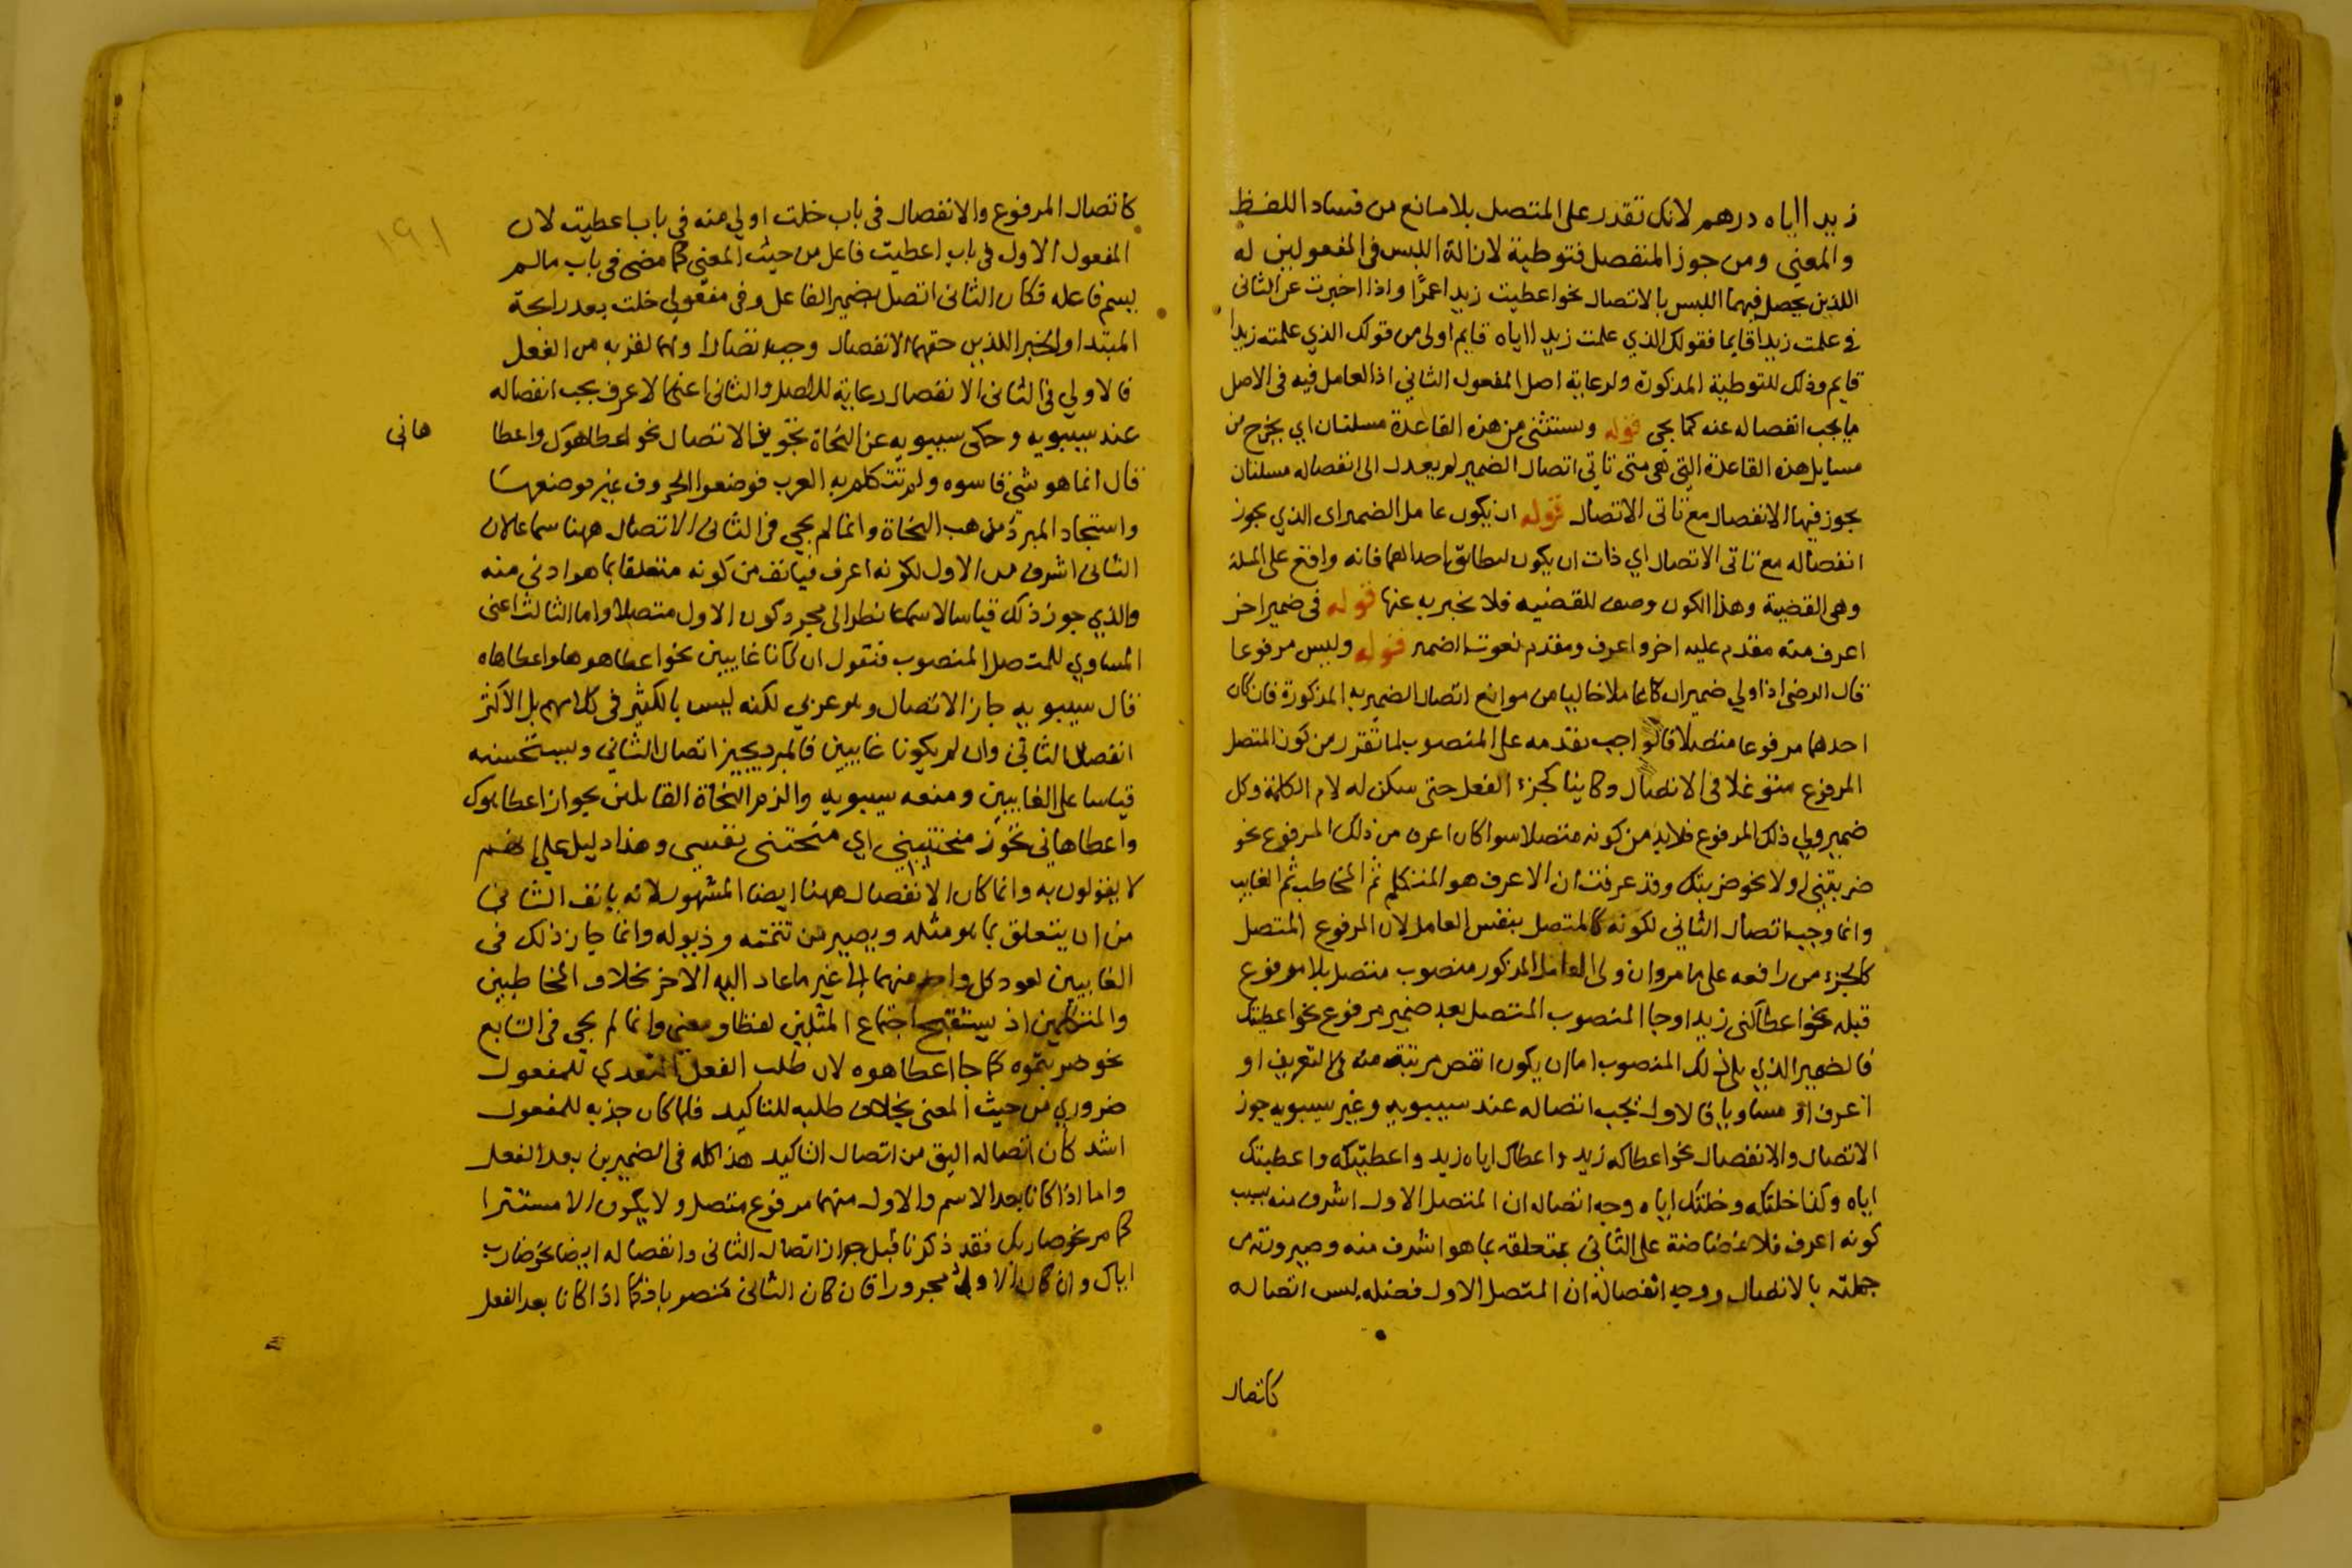 زيدا اياه درهم لانك تقدر على المتصل بلا مانع من فساد اللفظ
والمعنى ومن جوز المنفصل فتوطية لازالة اللبس في المفعولين له
اللذين يحصل فيهما اللبس بالاتصال نحو اعطيت زيدا عمرا واذا اخبرت عن الثاني
في علمت زيدا قايما فقولك الذي علمت زيدا اياه قايم اولى من قولك الذي علمته زيدا
قايم وذلك للتوطية المذكورة ولرعاية اصل المفعول الثاني اذ العامل فيه في الاصل
ما يجب انفصاله عنه كما يجي قوله وستثنى من هذه القاعدة مسلتان اي يخرج من
مسايل هذه القاعدة التي هي متى تاتي اتصال الضمير لم يعدل الى انفصاله مسلتان
يجوز فيها الانفصال مع تاتى الاتصال قوله ان يكون عامل الضمير اى الذي يجوز
انفصاله مع تاتى الاتصال اي ذات ان يكون ليطابق احدا لهما فانه واقع على المسلة
وهى القضية وهذا الكون وصف للقضيه فلا يخبر به عنها قوله في ضمير اخر
اعرف منه مقدم عليه اخر واعرف ومقدم نعوت الضمير قوله وليس مرفوعا
قال الرضى اذا ولي ضميران عاملا خاليا من موانع اتصال الضمير به المذكورة فان كان
احدهما مرفوعا متصلا فالواجب تقدمه على المنصوب لما تقرر من كون المتصل
المرفوع متوغلا في الاتصال وكاينا كجزء الفعل حتى سكن له لام الكلمة وكل
ضمير ولي ذلك المرفوع فلا بد من كونه متصلا سوا كان اعرف من ذلك المرفوع نحو
ضربتني او لا نحو ضربتك وقد عرفت ان الاعرف هو المتكلم ثم المخاطب ثم الغايب
وانما وجب اتصال الثاني لكونه كالمتصل بنفس العامل لان المرفوع المتصل
كالجزء من رافعه على ما مر وان ولى العامل المذكور منصوب متصل بلا مرفوع
قبله نحو اعطاكنى زيد او جا المنصوب المتصل بعد ضمير مرفوع نحو اعطيتك
فالضمير الذي يلي ذلك المنصوب اما ان يكون انقص مرتبة منه في التعريف او
اعرف او مساويا فالاول يجب اتصاله عند سيبويه وغير سيبويه جوز
الاتصال والانفصال نحو اعطاكه زيد واعطاك اياه زيد واعطيتكه واعطيتك
اياه وكذا خلتكه وخلتك اياه وجه اتصاله ان المتصل الاول اشرف منه بسبب
كونه اعرف فلا غضاضة على الثاني بمتعلقه بما هو اشرف منه وصيرورته من
جملته بالاتصال ووجه انفصاله ان المتصل الاول فضله ليس اتصاله
كاتصال
كاتصال المرفوع والانفصال في باب خلت اولى منه في باب اعطيت لان
المفعول الاول في باب اعطيت فاعل من حيث المعنى كما مضى في باب مالم
يسم فاعله فكان الثاني اتصل بضمير الفاعل وفي مفعولي خلت بعد رايحة
المبتدا والخبر اللذين حقهما الانفصال وجب اتصال اولهما لقربه من الفعل
فالاولي في الثاني الانفصال رعاية للاصل والثاني اعنى الاعرف يجب انفصاله
عند سيبويه وحكى سيبويه عن النحاة تجويز الاتصال نحو اعطاهوك واعطا
هانى
قال انما هو شي قاسوه ولم تتكلم به العرب فوضعوا الحروف غير موضعها
واستجاد المبرد مذهب النحاة وانما لم يجي في الثاني الاتصال ههنا سماعا لان
الثاني اشرف من الاول لكونه اعرف فيانف من كونه متعلقا بما هو ادنى منه
والذي جوز ذلك قياسا لا سماعا نظر الى مجرد كون الاول متصلا واما الثالث اعنى
المساوي للمتصل المنصوب فنقول ان كانا غايبين نحو اعطاهوها واعطاهاه
قال سيبويه جاز الاتصال وهو عربي لكنه ليس بالكثير في كلامهم بل الاكثر
انفصال الثاني وان لم يكونا غايبين فالمبرد يجيز اتصال الثاني ويستحسنه
قياسا على الغايبين ومنعه سيبويه والزم النحاة القايلين بجواز اعطاهوك
واعطاهاني تجوز منحتنيني اي منحتني نفسي وهذا دليل على انهم
لا يقولون به وانما كان الانفصال ههنا ايضا المشهور لانه يانف الثاني
من ان يتعلق بما هو مثله ويصير من تتمته وذيوله وانما جاز ذلك في
الغايبين لعود كل واحد منهما الى غير ما عاد اليه الاخر بخلاف المخاطبين
والمتكلمين اذ يستقبح اجتماع المثلين لفظا ومعنى وانما لم يجي في التابع
نحو ضربتموه كما جا اعطاهوه لان طلب الفعل المتعدي للمفعول
ضروري من حيث المعنى بخلاف طلبه للتاكيد فلما كان جذبه للمفعول
اشد كان اتصاله اليق من اتصال التاكيد هذا كله في الضميرين بعد الفعل
واما اذا كانا بعد الاسم والاول منهما مرفوع متصل ولا يكون الا مستترا
كما مر نحو ضاربك فقد ذكرنا قبل جواز اتصال الثاني وانفصاله ايضا نحو ضارب
اياك وان كان الاول مجرورا فان كان الثاني منصوبا فكما اذا كانا بعد الفعل
١٩١